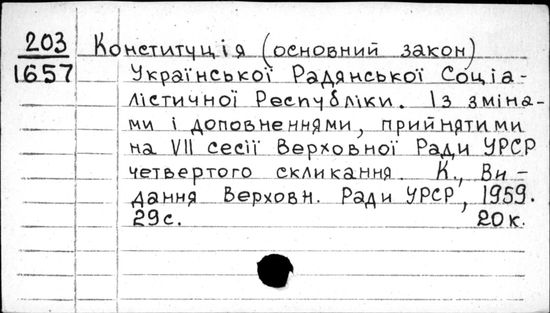 203 Конституція (основний закон)
1657 Української Радянської Соціа-
лістичної Республіки. Із зміна-
ми і доповненнями, прийнятими
на VII сесії Верховної Ради УРСР
четвертого скликання. К., Ви-
дання Верховн. Ради УРСР, 1959.
29с. 20к.